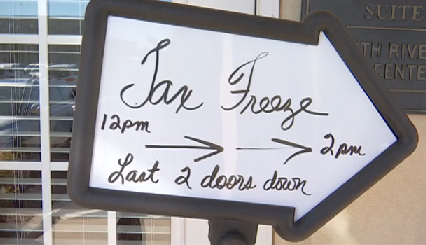 SUITE
TH RIVE
CENTE
Tax Freeze
12pm → → 2pm
Last 2 doors down